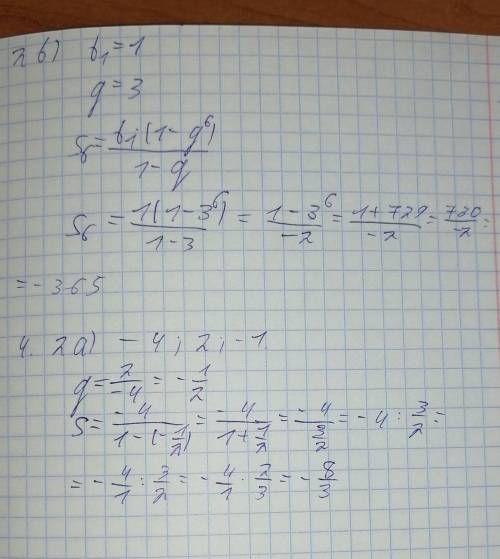 2б) b₁=1
q=3
S₆=b₁(1-q⁶)/1-q
S₆=1(1-3⁶)/1-3=1-3⁶/-2=1+729/-2=730/-2=
=-365
4. 2а) -4; 2; -1.
q=2/-4=-1/2
S=-4/1-(-1/2)=-4/1+1/2=-4/3/2=-4:3/2=
=-4/1:3/2=-4/1·2/3=-8/3